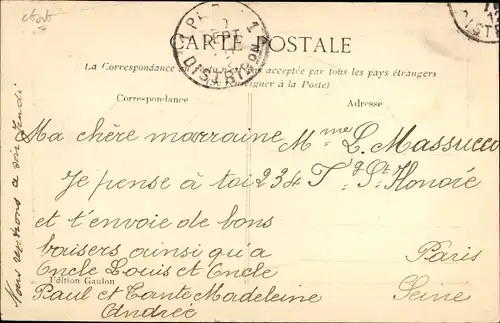 CARTE POSTALE
La Correspondance au recto n'est pas acceptée par tous les pays étrangers
(Se renseigner à la Poste)
Correspondance
Adresse
Ma chère marraine
Je pense à toi
et t'envoie de bons
baisers ainsi qu'a
Oncle Louis et Oncle
Paul et Tante Madeleine
Andrée
Mme L. Massucco
234 Fg St Honoré
Paris
Seine
Edition Gaulon
DISTRIB